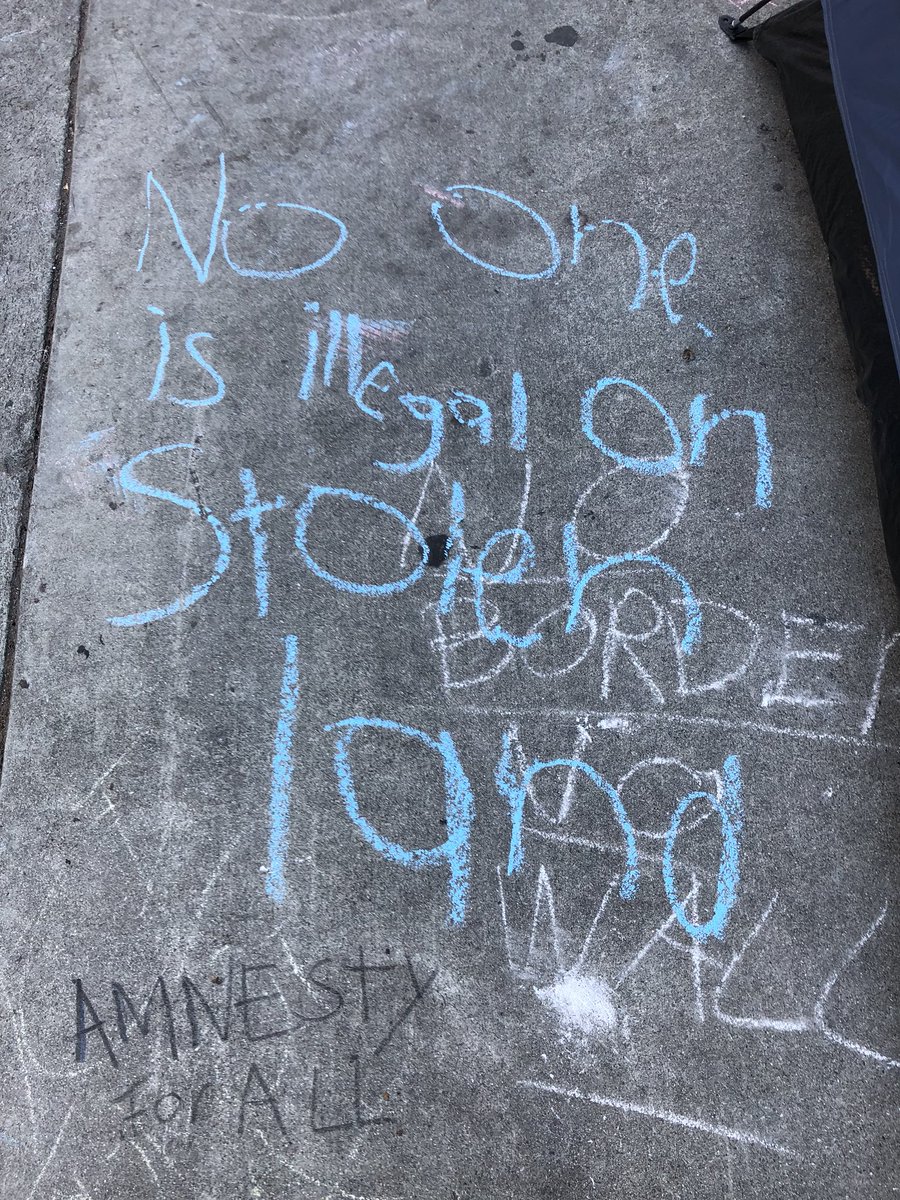 No One
is illegal On
Stolen
land
NO
BORDER
NO
WALL
AMNESty
For ALL